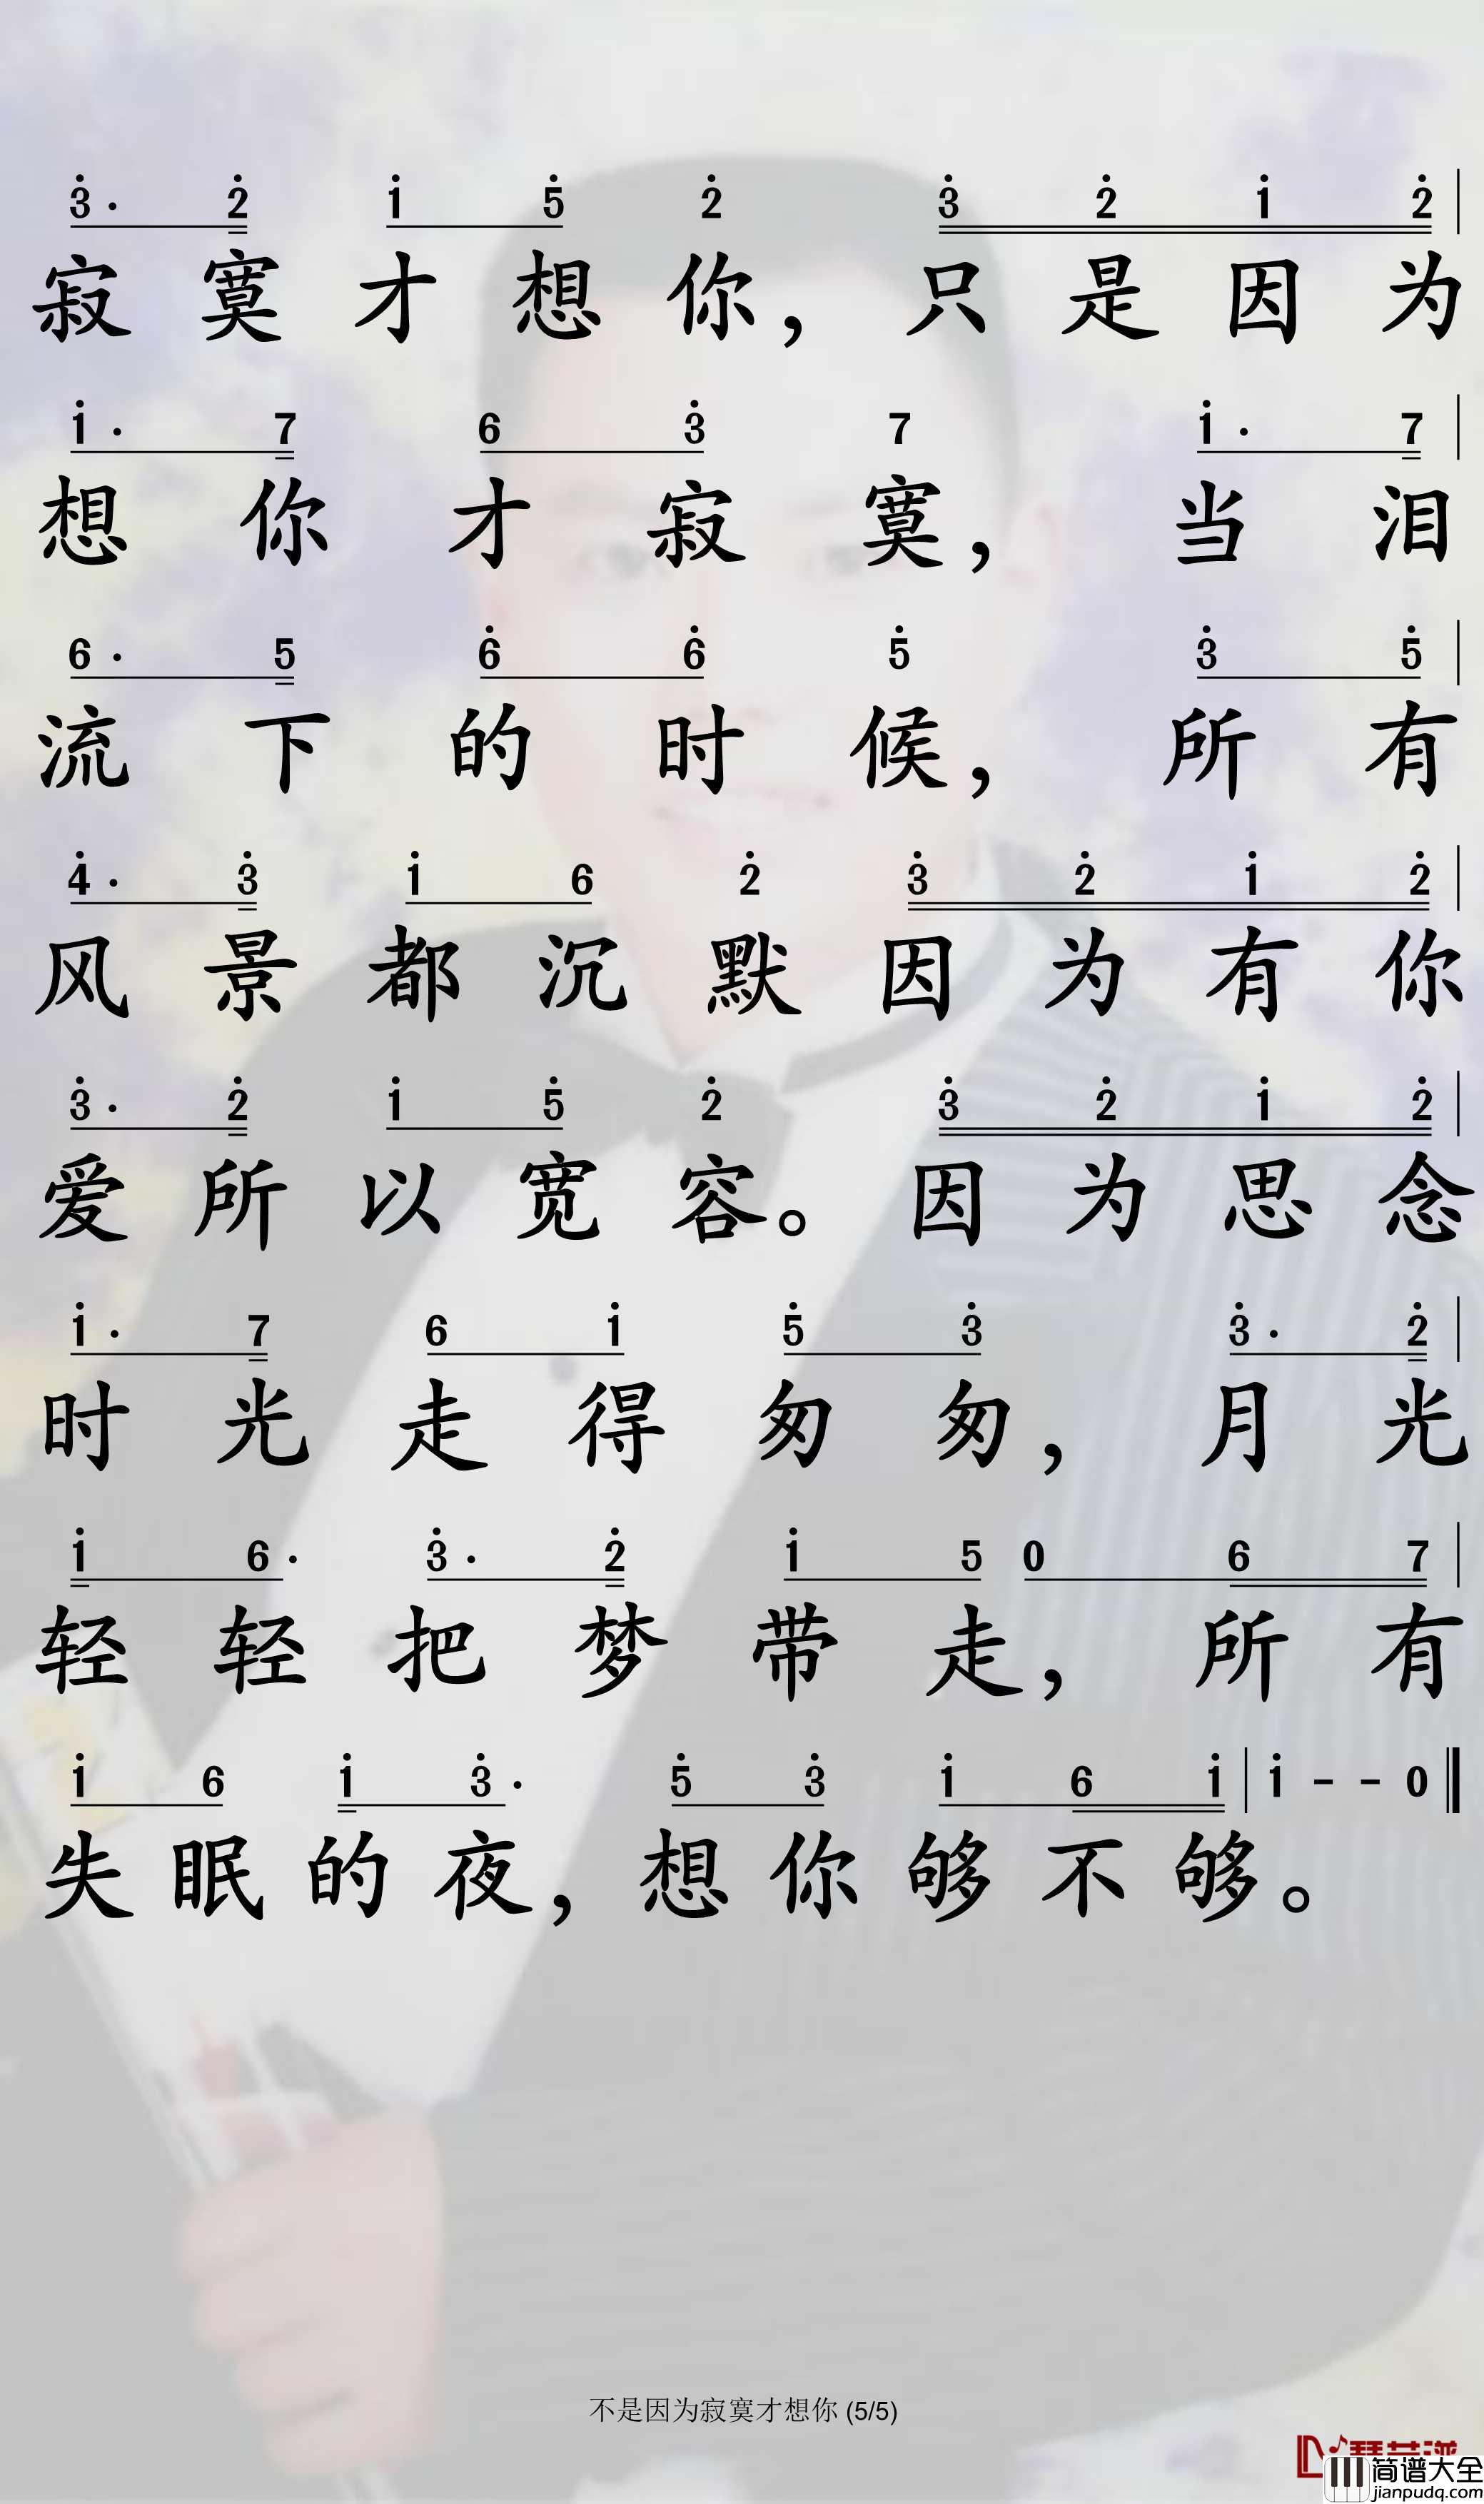 3· 2 1 5 2 3 2 1 2
寂寞才想你，只是因为
1· 7 6 3 7 1· 7
想你才寂寞，当泪
6· 5 6 6 5 3 5
流下的时候，所有
4· 3 1 6 2 3 2 1 2
风景都沉默因为有你
3· 2 1 5 2 3 2 1 2
爱所以宽容。因为思念
1· 7 6 1 5 3 3· 2
时光走得匆匆，月光
1 6· 3· 2 1 5 0 6 7
轻轻把梦带走，所有
1 6 1 3· 5 3 1 6 1 | 1 - - 0
失眠的夜，想你够不够。
不是因为寂寞才想你 (5/5)
简谱大全
jianpudq.com